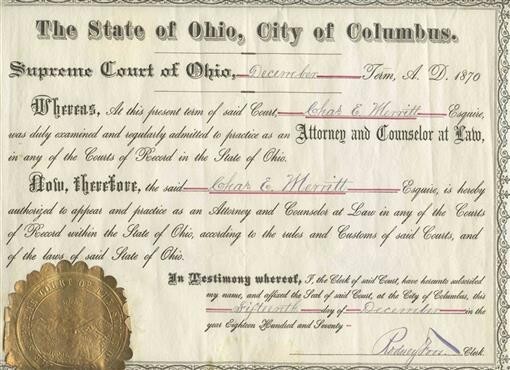 The State of Ohio, City of Columbus.
Supreme Court of Ohio, December Term, A. D. 1870
Whereas, At this present term of said Court, Chas E. Merritt Esquire,
was duly examined and regularly admitted to practice as an Attorney and Counselor at Law,
in any of the Courts of Record in the State of Ohio.
Now, therefore, the said Chas E. Merritt Esquire, is hereby
authorized to appear and practice as an Attorney and Counselor at Law in any of the Courts
of Record within the State of Ohio, according to the rules and Customs of said Courts, and
of the laws of said State of Ohio.
In Testimony whereof, I, the Clerk of said Court, have hereunto subscribed
my name, and affixed the Seal of said Court, at the City of Columbus, this
Fifteenth day of December in the
year Eighteen Hundred and Seventy
Rodney Foos Clerk.